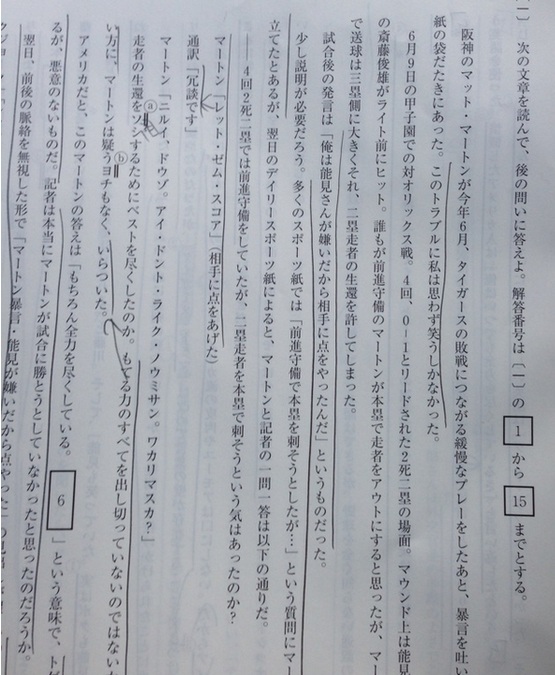 〔一〕 次の文章を読んで、後の問いに答えよ。解答番号は〔一〕の 1 から 15 までとする。
阪神のマット・マートンが今年6月、タイガースの敗戦につながる緩慢なプレーをしたあと、暴言を吐い
紙の袋だたきにあった。このトラブルに私は思わず笑うしかなかった。
6月9日の甲子園での対オリックス戦。4回、0−1とリードされた2死二塁の場面。マウンド上は能見
の斎藤俊雄がライト前にヒット。誰もが前進守備のマートンが本塁で走者をアウトにすると思ったが、マー
で送球は三塁側に大きくそれ、二塁走者の生還を許してしまった。
試合後の発言は「俺は能見さんが嫌いだから相手に点をやったんだ」というものだった。
少し説明が必要だろう。多くのスポーツ紙では「前進守備で本塁を刺そうとしたが…」という質問にマー
立てたとあるが、翌日のデイリースポーツ紙によると、マートンと記者の一問一答は以下の通りだ。
――4回2死二塁では前進守備をしていたが、二塁走者を本塁で刺そうという気はあったのか?
マートン「レット・ゼム・スコア」(相手に点をあげた)
通訳「冗談です」
マートン「ニルイ、ドウゾ。アイ・ドント・ライク・ノウミサン。ワカリマスカ?」
走者の生還をⓐソシするためにベストを尽くしたのか。もてる力のすべてを出し切っていないのではない
い方に、マートンは疑うⓑヨチもなく、いらついた。
アメリカだと、このマートンの答えは「もちろん全力を尽くしている。 6 」という意味で、トゲ
るが、悪意のないものだ。記者は本当にマートンが試合に勝とうとしていなかったと思ったのだろうか。
翌日、前後の脈絡を無視した形で「マートン暴言・能見が嫌いだから点やった」の見出し